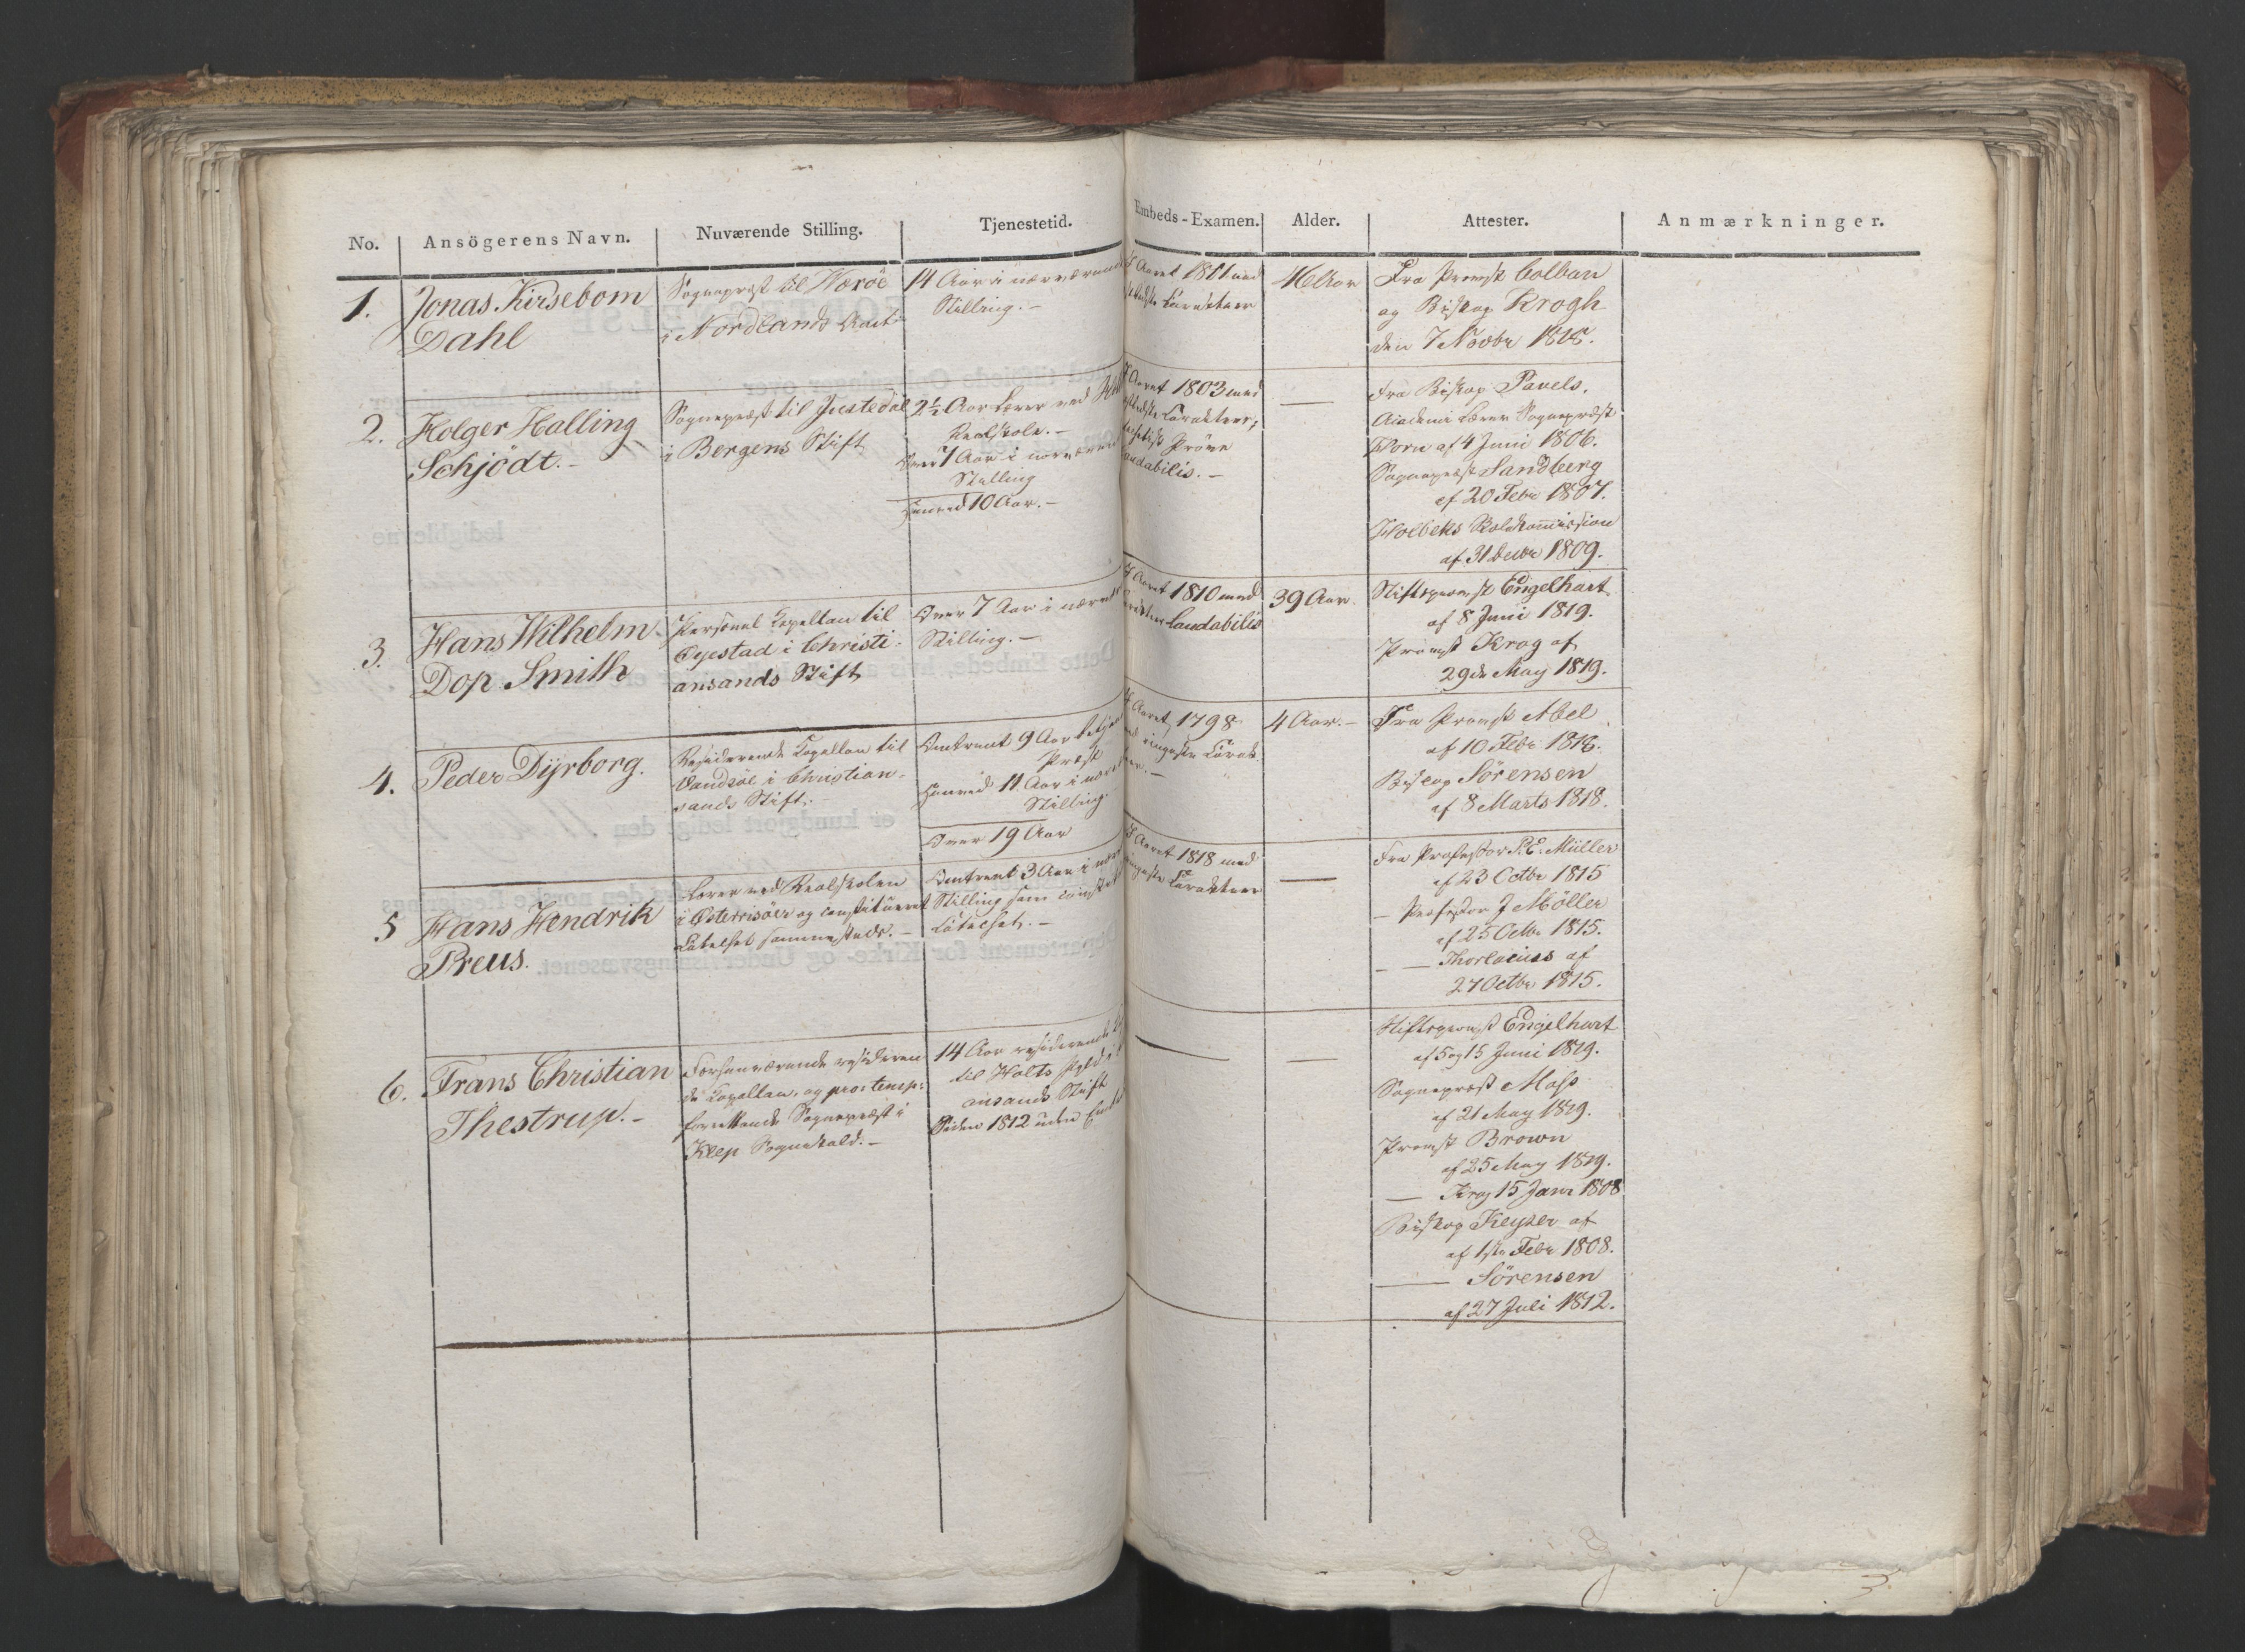 No. Ansögerens Navn. Nuværende Stilling. Tjenestetid. Embeds-Examen. Alder. Attester. Anmærkninger.
1.
Jonas Kirsebom
Dahl
Sognepræst til Nærøe
i Nordlands Amt
14 Aar i nærværende
Stilling.-
Aaret 1811 med
Caracteer
46 Aar
Fra Provst Colban
og Biskop Krogh
den 7 Novbr 1818.
2.
Holger Halling
Schjödt.-
Sognepræst til Justedal
i Bergens Stift
2½ Aar Lærer ved
Realskole.-
Over 7 Aar i nærværende
Stilling
Henved 10 Aar.-
Aaret 1803 med
Caracteer,
Pröve
Laudabilis.-
—
Fra Biskop Pavels.
Academie Lærer Sognepræst
Horn af 4 Juni 1806.
Sognepræst Sandberg
af 20 Febr 1807.
Holbeks Skolekommission
af 31 Decbr 1809.
3.
Hans Wilhelm
Dop Smith
Personel Capellan til
Øyestad i Christi-
ansands Stift
Over 7 Aar i nærv
Stilling.-
Aaret 1810 med
Laudabilis
39 Aar
Stiftsprovst Engelhart
af 8 Juni 1819.
Provst Krog af
29de May 1819.
4.
Peder Dyrborg.
Residerende Capellan til
i Christian-
sands Stift.
Omtrent 9 Aar
Præst
Henved 11 Aar i nærv
Stilling.
Over 19 Aar
Aaret 1798
ringeste Carak
teer.-
4 Aar.-
Fra Provst Abel
af 10 Febr 1818.
Biskop Sörensen
af 8 Marts 1818.
5
Hans Hendrik
Preus.
Lærer ved Realskolen
i Österrisöer og constitueret
Catechet sammesteds.-
Omtrent 3 Aar i nærv
Stilling som const
Catechet.-
Aaret 1818 med
ringeste Caracteer
—
Fra Professor P. E. Müller
af 23 Octbr 1815
— Professor J Möller
af 25 Octbr 1815.
— — Thorlacius af
27 Octbr 1815.
6.
Frans Christian
Thestrup.-
Forhenværende resideren
de Capellan, og pro: temp:
forrettende Sognepræst i
Klep Sognekald.-
14 Aar residerende
til Holts
ansands Stift
Siden 1812 uden
—
—
Stiftsprovst Engelhart
af 5 og 15 Juni 1819.
Sognepræst Moss
af 21 May 1819.
Provst Brown
af 25 May 1819.
— Krog 15 Janr 1808
Biskop Keyser af
af 1ste Febr 1808.
— Sörensen
af 27 Juli 1812.